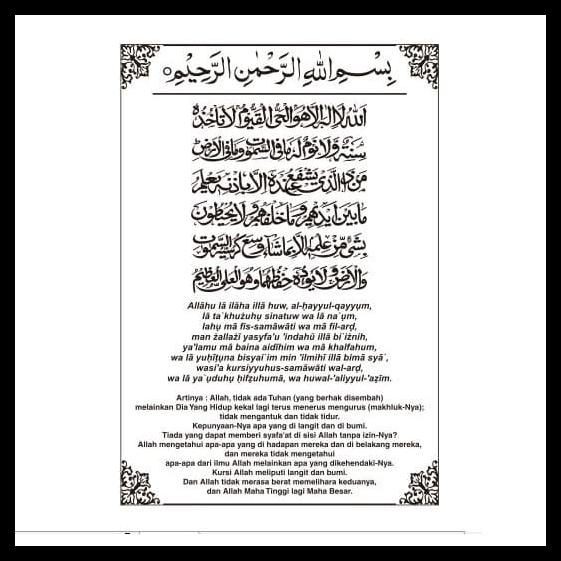 بِسْمِ اللهِ الرَّحْمٰنِ الرَّحِيْمِ
اللهُ لَا اِلٰهَ اِلَّا هُوَ الْحَيُّ الْقَيُّوْمُ لَا تَأْخُذُهُ
سِنَةٌ وَّلَا نَوْمٌ لَهُ مَا فِى السَّمٰوٰتِ وَمَا فِى الْاَرْضِ
مَنْ ذَا الَّذِيْ يَشْفَعُ عِنْدَهُ اِلَّا بِاِذْنِهِ يَعْلَمُ
مَا بَيْنَ اَيْدِيْهِمْ وَمَا خَلْفَهُمْ وَلَا يُحِيْطُوْنَ
بِشَيْءٍ مِّنْ عِلْمِهِ اِلَّا بِمَا شَاءَ وَسِعَ كُرْسِيُّهُ السَّمٰوٰتِ
وَالْاَرْضَ وَلَا يَئُوْدُهُ حِفْظُهُمَا وَهُوَ الْعَلِيُّ الْعَظِيْمُ
Allāhu lā ilāha illā huw, al-ḥayyul-qayyụm,
lā ta`khużuhụ sinatuw wa lā na`ụm,
lahụ mā fis-samāwāti wa mā fil-arḍ,
man żallażī yasyfa'u 'indahū illā bi`iżnih,
ya'lamu mā baina aidīhim wa mā khalfahum,
wa lā yuḥīṭụna bisyai`im min 'ilmihī illā bimā syā`,
wasi'a kursiyyuhus-samāwāti wal-arḍ,
wa lā ya`ụduhụ ḥifẓuhumā, wa huwal-'aliyyul-'aẓīm.
Artinya : Allah, tidak ada Tuhan (yang berhak disembah)
melainkan Dia Yang Hidup kekal lagi terus menerus mengurus (makhluk-Nya);
tidak mengantuk dan tidak tidur.
Kepunyaan-Nya apa yang di langit dan di bumi.
Tiada yang dapat memberi syafa'at di sisi Allah tanpa izin-Nya?
Allah mengetahui apa-apa yang di hadapan mereka dan di belakang mereka,
dan mereka tidak mengetahui
apa-apa dari ilmu Allah melainkan apa yang dikehendaki-Nya.
Kursi Allah meliputi langit dan bumi.
Dan Allah tidak merasa berat memelihara keduanya,
dan Allah Maha Tinggi lagi Maha Besar.